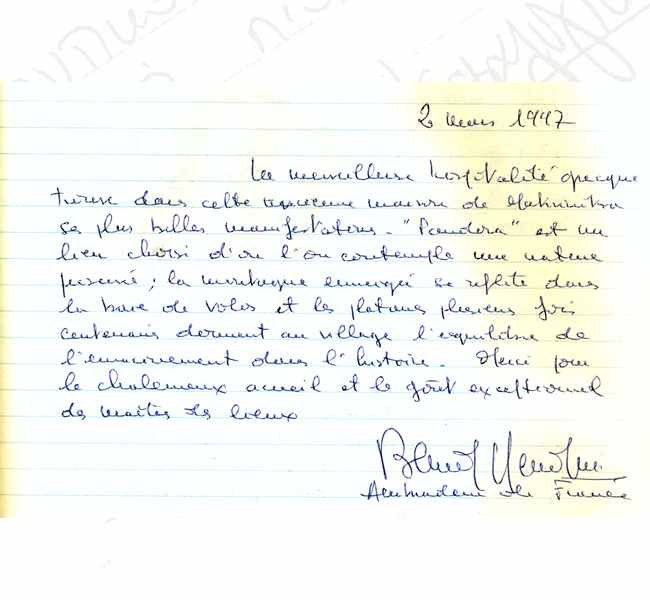 2 mars 1997
La merveilleuse hospitalité grecque
trouve dans cette ancienne maison de Makrinitsa
ses plus belles manifestations. "Pandora" est un
lieu choisi d'où l'on contemple une nature
préservée ; la montagne enneigée se reflète dans
la baie de Volos et les platanes plusieurs fois
centenaires donnent au village l'équilibre de
l'enracinement dans l'histoire. Merci pour
le chaleureux accueil et le goût exceptionnel
des maîtres des lieux
Ambassadeur de France